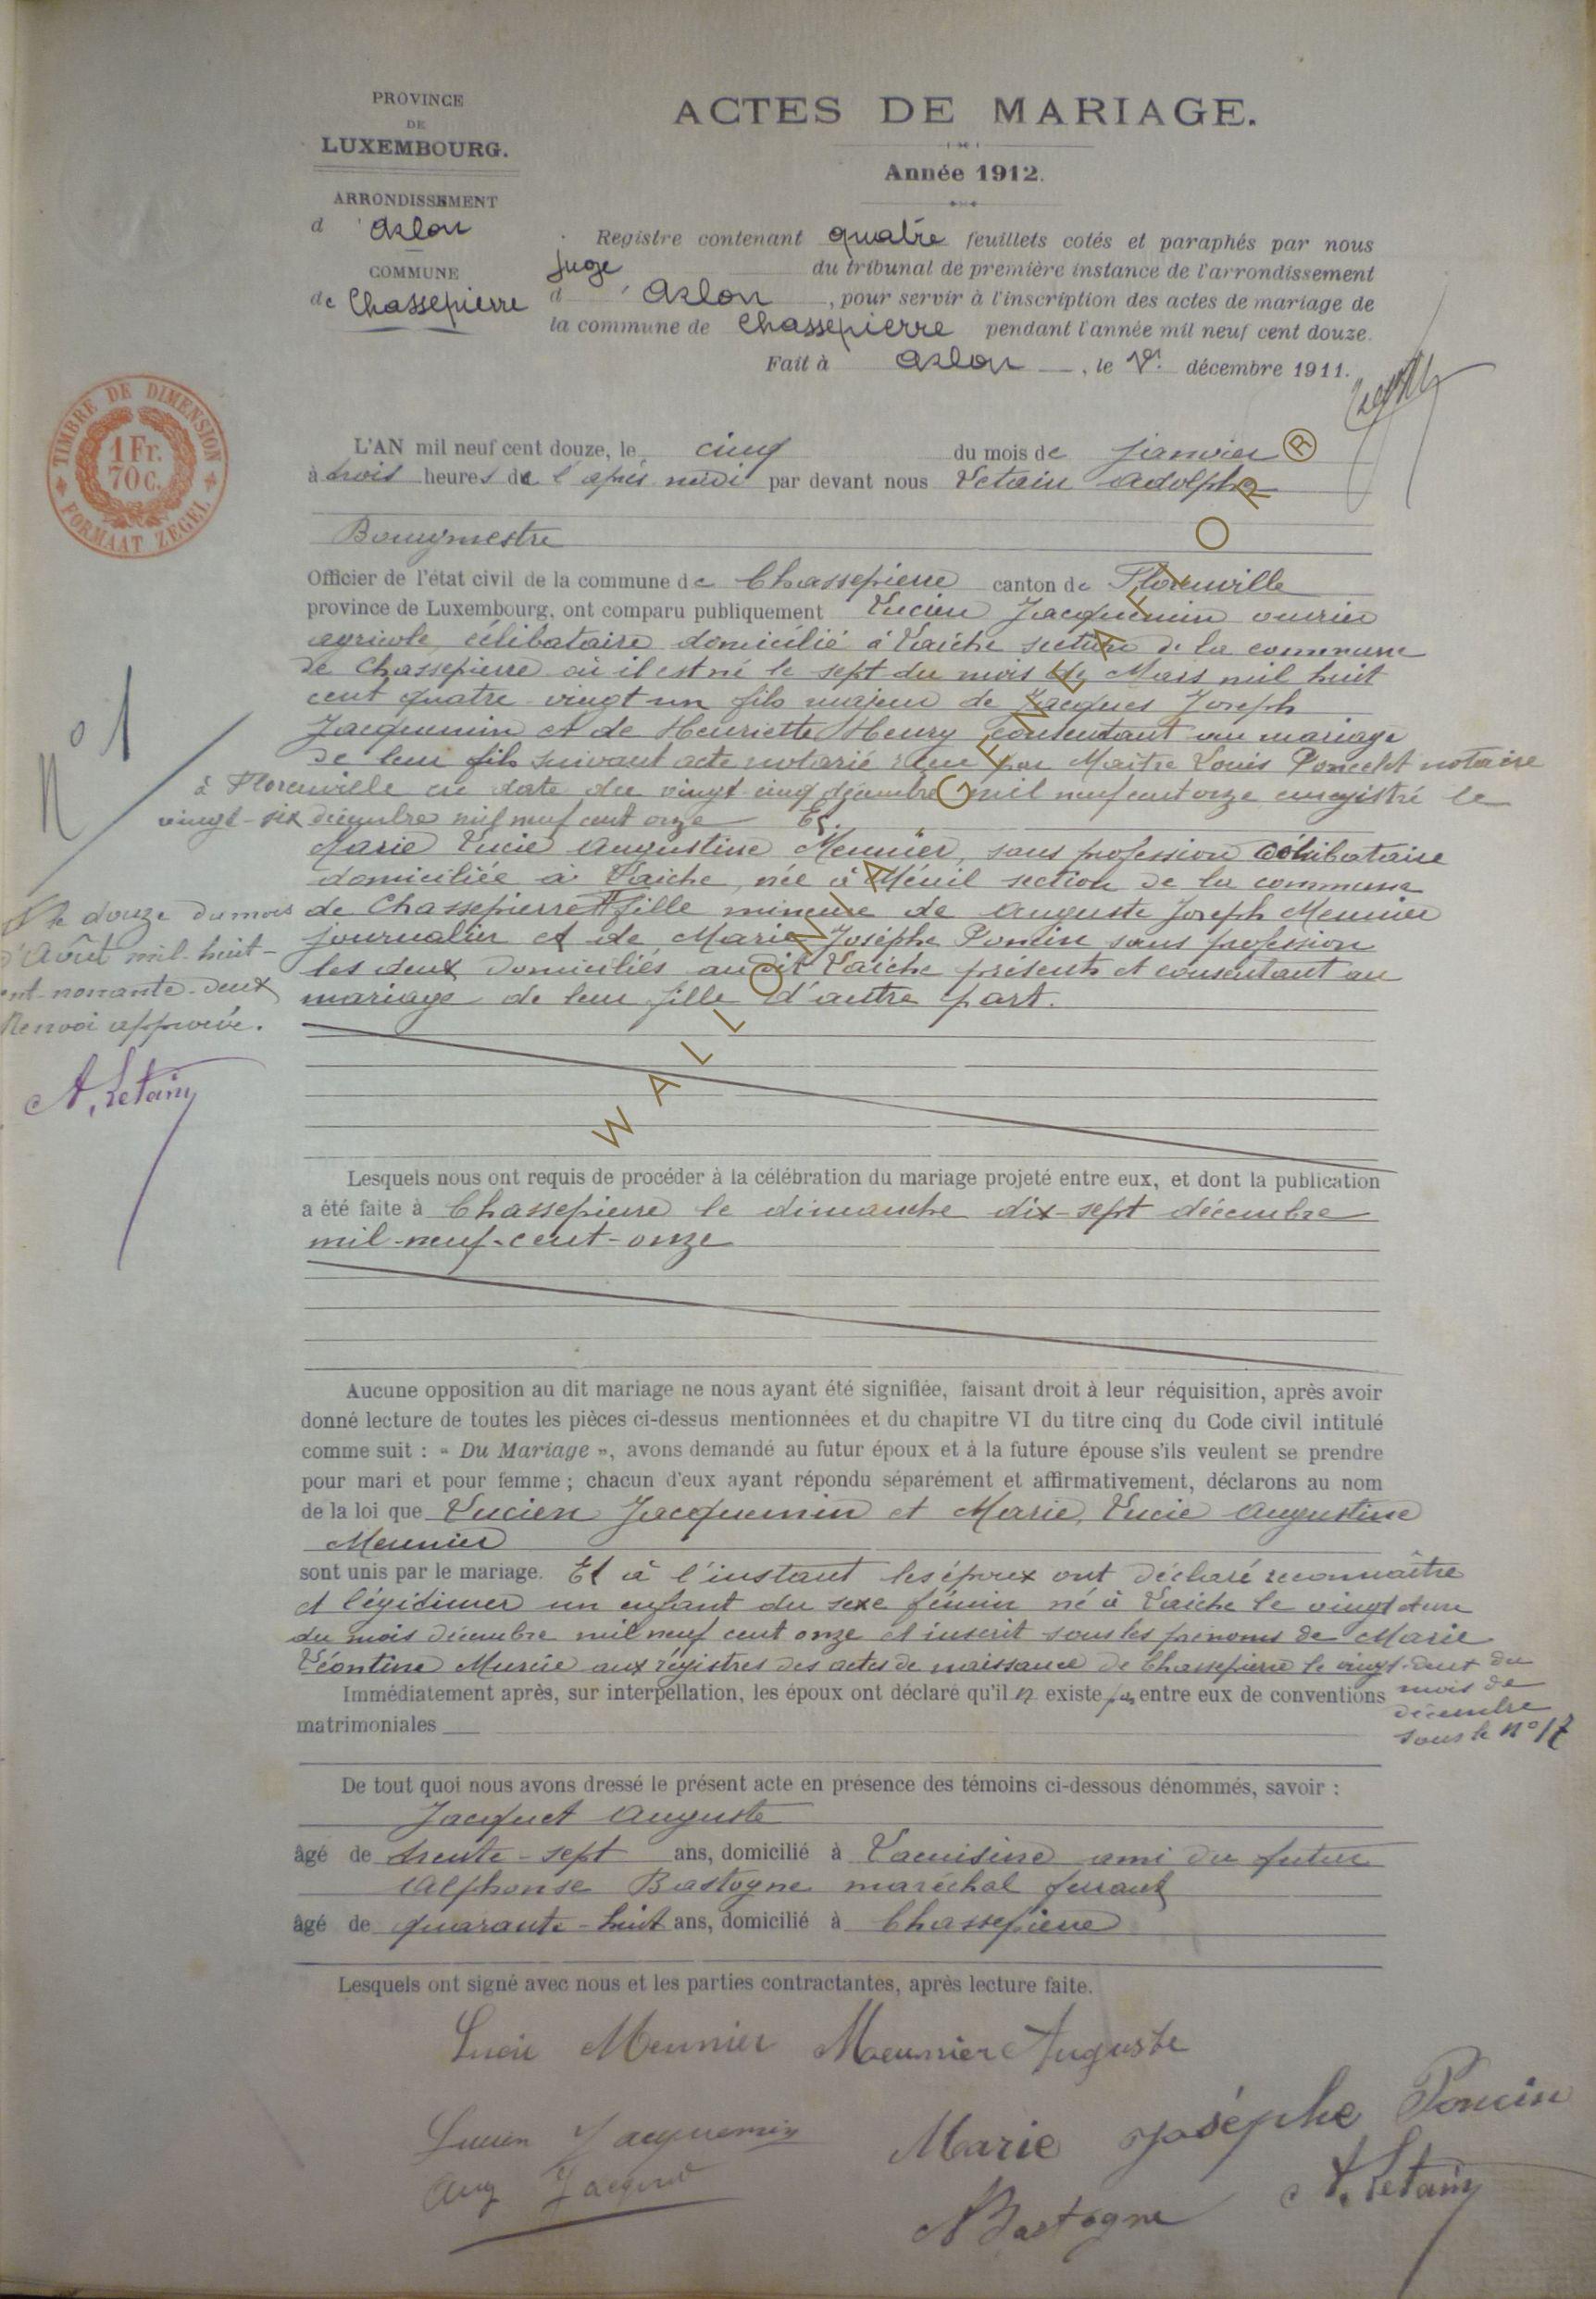 PROVINCE
DE
LUXEMBOURG.
ARRONDISSEMENT
d'Arlon
COMMUNE
de Chassepierre
ACTES DE MARIAGE.
Année 1912.
Registre contenant quatre feuillets cotés et paraphés par nous
juge du tribunal de première instance de l'arrondissement
d'Arlon, pour servir à l'inscription des actes de mariage de
la commune de Chassepierre pendant l'année mil neuf cent douze.
Fait à Arlon, le 1er décembre 1911.
TIMBRE DE DIMENSION
1 Fr.
70 c.
FORMAAT ZEGEL
L'AN mil neuf cent douze, le cinq du mois de janvier
à trois heures de l'après midi par devant nous Letain Adolphe
Bourgmestre
Officier de l'état civil de la commune de Chassepierre canton de Florenville
province de Luxembourg, ont comparu publiquement Lucien Jacquemin ouvrier
agricole, célibataire domicilié à Laiche section de la commune
de Chassepierre où il est né le sept du mois de Mars mil huit
cent quatre-vingt un fils majeur de Jacques Joseph
Jacquemin et de Henriette Henry consentant au mariage
de leur fils suivant acte notarié reçu par Maître Louis Poncelet notaire
à Florenville en date du vingt cinq décembre mil neuf cent onze enregistré le
vingt-six décembre mil neuf cent onze Et.
Marie Lucie Augustine Meunier, sans profession célibataire
domiciliée à Laiche, née à Ménil section de la commune
de Chassepierre fille mineure de Auguste Joseph Meunier
journalier et de Marie Joséphe Poncin sans profession
les deux domiciliés au dit Laiche présents et consentant au
mariage de leur fille d'autre part.
N° 1
le douze du mois
d'Août mil-huit-
ent-nonante-deux
Renvoi approuvé.
A. Letain
Lesquels nous ont requis de procéder à la célébration du mariage projeté entre eux, et dont la publication
a été faite à Chassepierre le dimanche dix-sept décembre
mil-neuf-cent-onze
Aucune opposition au dit mariage ne nous ayant été signifiée, faisant droit à leur réquisition, après avoir
donné lecture de toutes les pièces ci-dessus mentionnées et du chapitre VI du titre cinq du Code civil intitulé
comme suit : « Du Mariage », avons demandé au futur époux et à la future épouse s'ils veulent se prendre
pour mari et pour femme ; chacun d'eux ayant répondu séparément et affirmativement, déclarons au nom
de la loi que Lucien Jacquemin et Marie, Lucie Augustine
Meunier
sont unis par le mariage. Et à l'instant les époux ont déclaré reconnaître
et légitimer un enfant du sexe féminin né à Laiche le vingt et un
du mois décembre mil neuf cent onze et inscrit sous les prénoms de Marie
Léontine aux régistres des actes de naissance de Chassepierre le vingt-deux du
mois de
décembre
sous le N° 17
Immédiatement après, sur interpellation, les époux ont déclaré qu'il n'existe pas entre eux de conventions
matrimoniales
De tout quoi nous avons dressé le présent acte en présence des témoins ci-dessous dénommés, savoir :
Jacquet Auguste
âgé de trente-sept ans, domicilié à Lacuisine ami du futur
Alphonse Bastogne maréchal ferrant
âgé de quarante-huit ans, domicilié à Chassepierre
Lesquels ont signé avec nous et les parties contractantes, après lecture faite.
Lucie Meunier Meunier Auguste
Lucien Jacquemin Marie Joséphe Poncin
Aug Jacquet
A Bastogne A. Letain
WALLONIA GENEALFOR ®